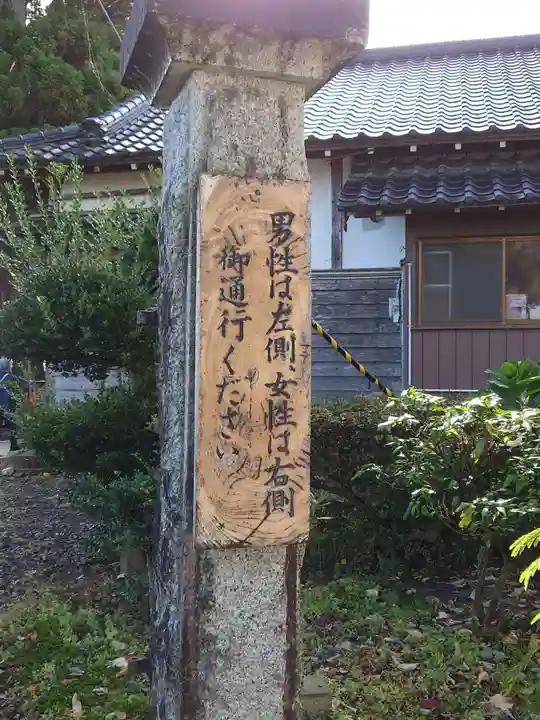 男性は左側、女性は右側
御通行ください